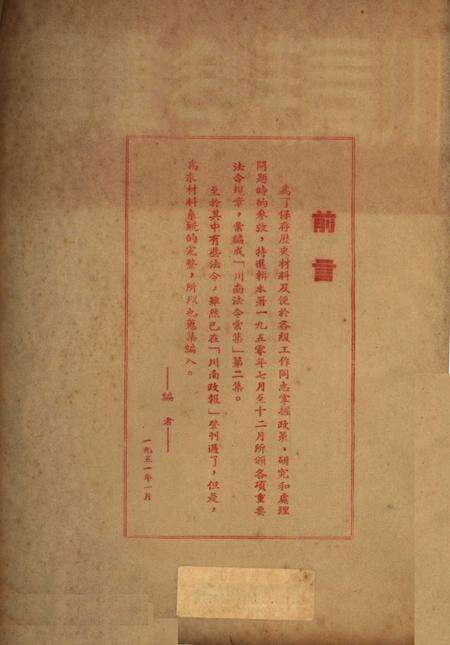 前言
為了保存歷史材料及便於各級工作同志掌握政策、研究和處理
問題時的參攷，特選輯本署一九五零年七月至十二月所頒各項重要
法令規章，彙編成「川南法令彙集」第二集。
至於其中有些法令，雖然已在「川南政報」登刋過了，但是，
為求材料系統的完整，所以也蒐集編入。
——編者——
一九五一年一月